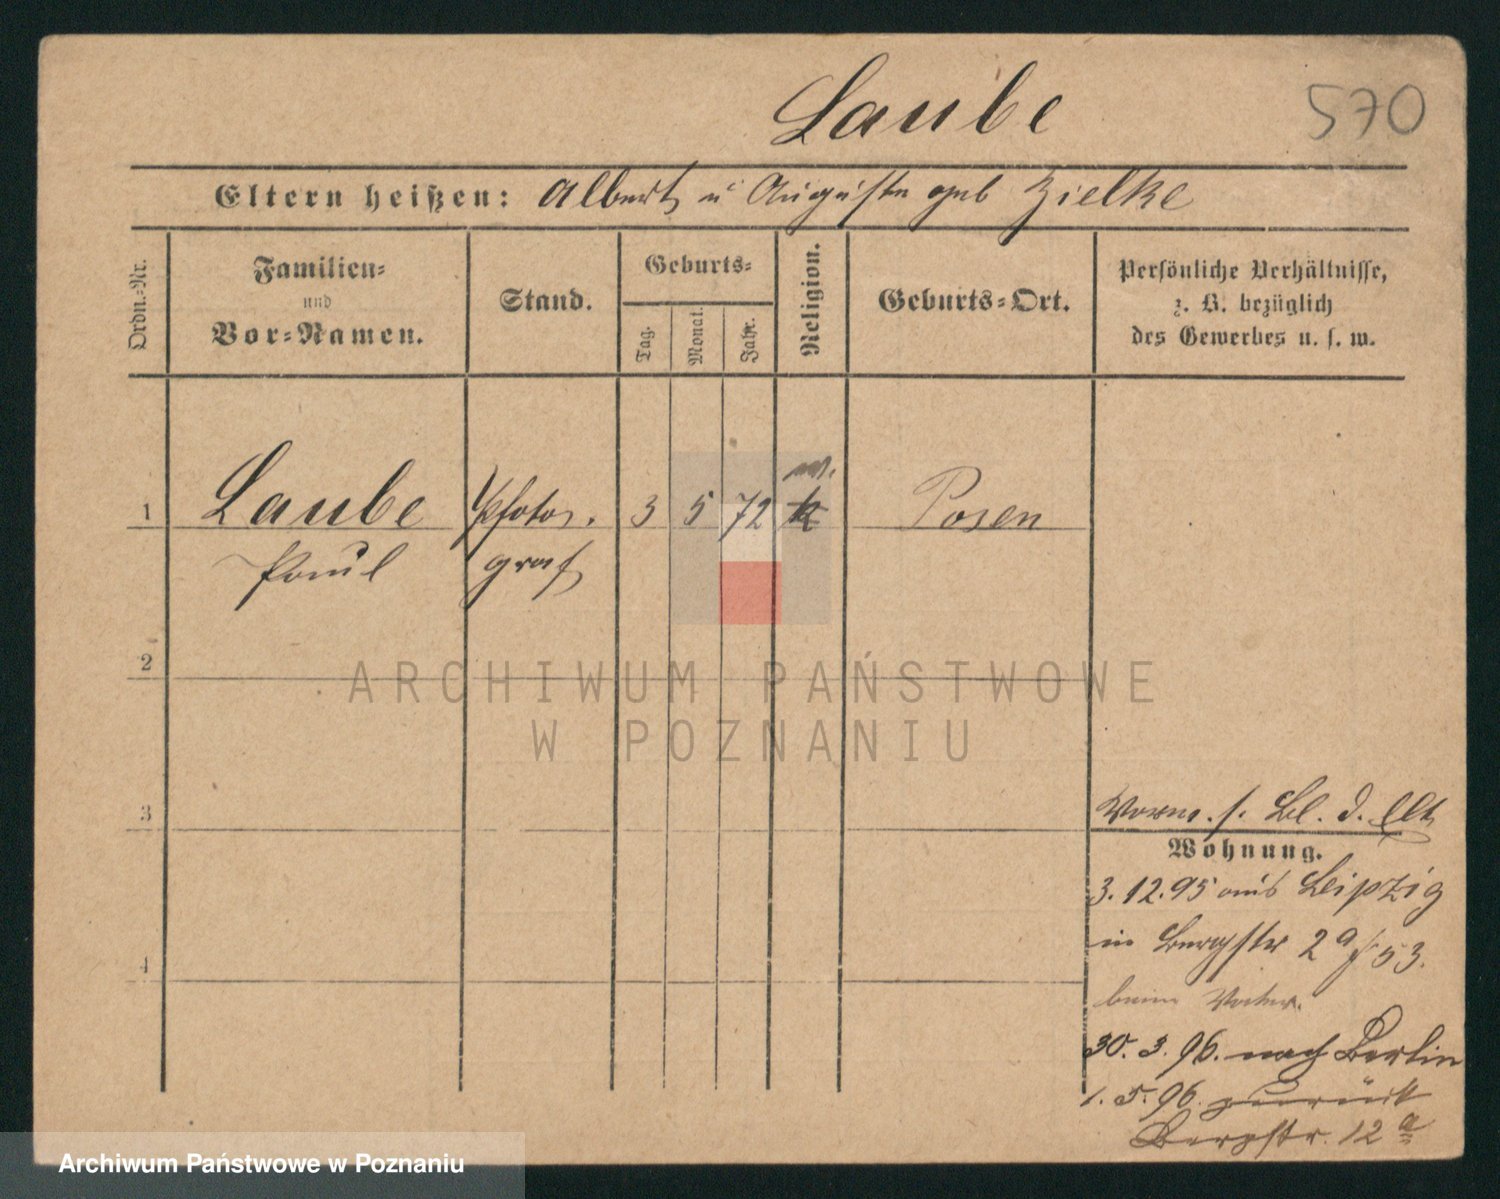 Laube
570
Eltern heißen: Albert u Auguste geb Zielke
Ordn.-Nr.
Familien-
und
Vor-Namen.
Stand.
Geburts-
Tag.
Monat.
Jahr.
Religion.
Geburts-Ort.
Persönliche Verhältnisse,
z. B. bezüglich
des Gewerbes u. s. w.
1 Laube Photo. 3 5 72 k Posen
Paul graf
2
ARCHIWUM PAŃSTWOWE
W POZNANIU
3
Vorm. s. Bl. d. Elt
Wohnung.
3. 12. 95 aus Leipzig
in Bergstr 2a 53.
beim Vater.
4
30. 3. 96. nach Berlin
1. 5. 96. zurück
Bergstr. 12 a
Archiwum Państwowe w Poznaniu